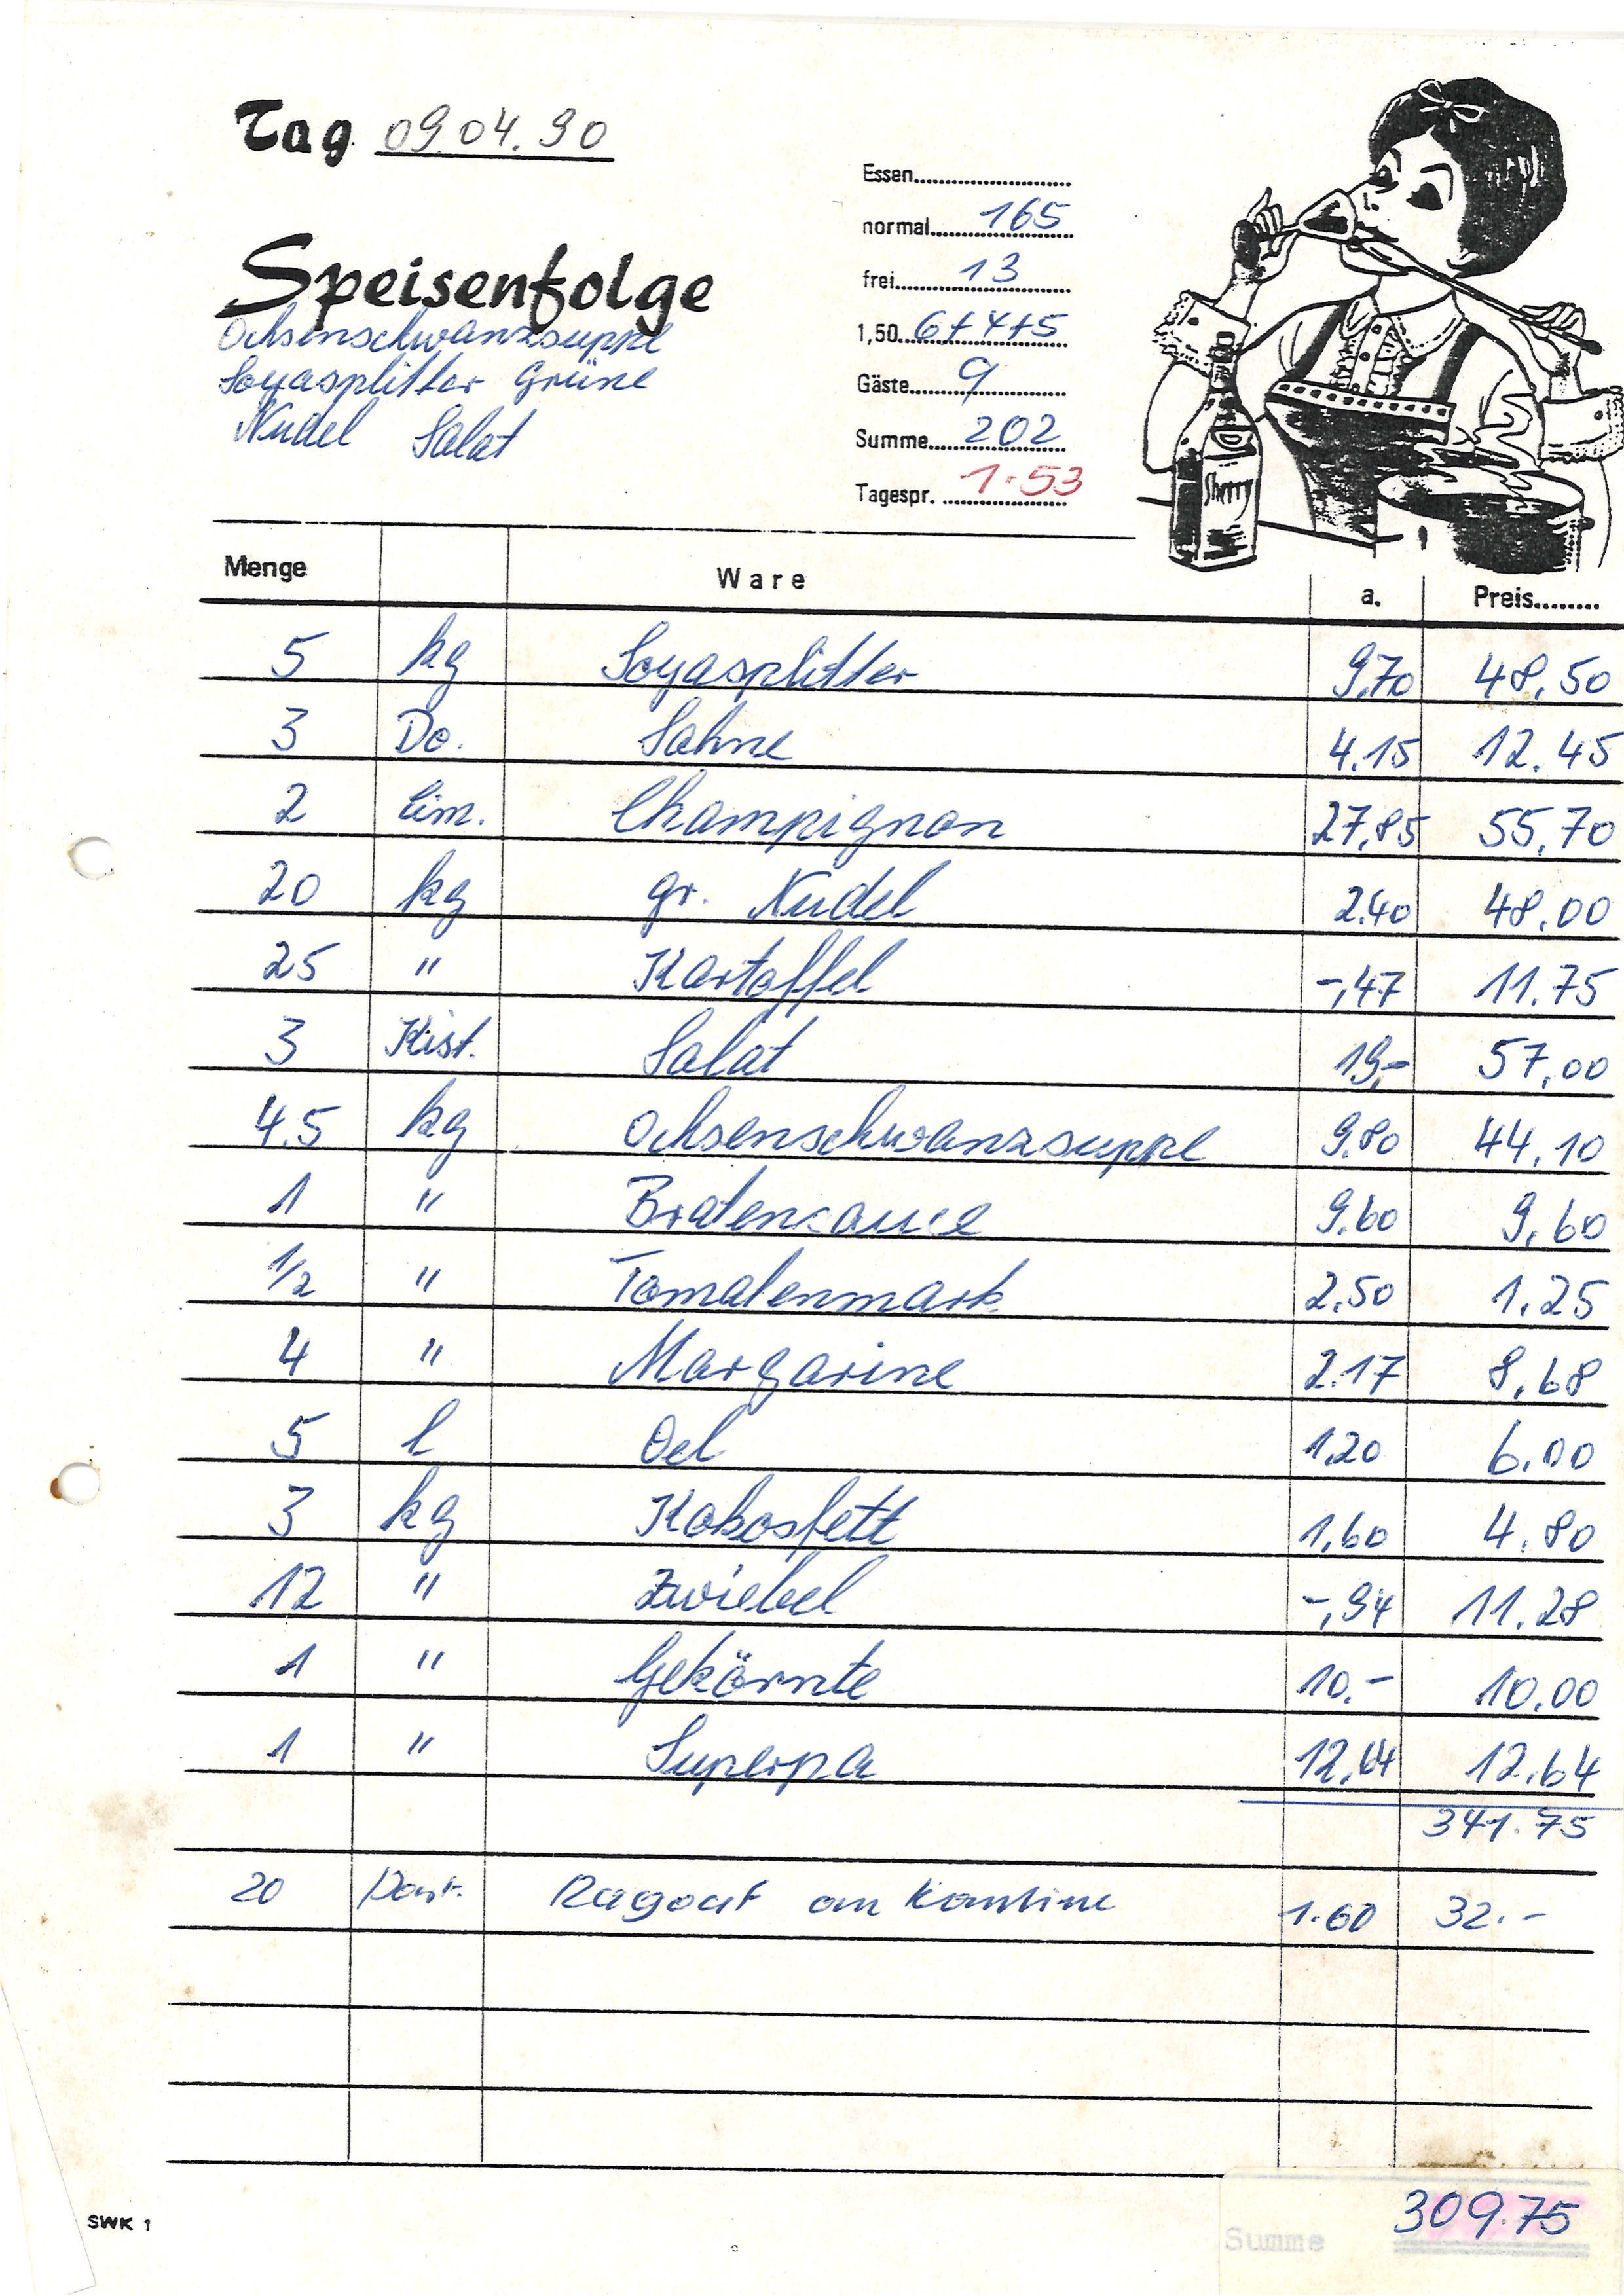 Tag 09.04.90
Essen
normal 165
Speisenfolge
frei 13
Ochsenschwanzsuppe
1,50 6+4+5
Soyasplitter Grüne
Gäste 9
Nudel Salat
Summe 202
Tagespr. 1.53
Sherry
Menge Ware a. Preis
5 kg Soyasplitter 9,70 48,50
3 Do. Sahne 4.15 12.45
2 Eim. Champignon 27,85 55,70
20 kg gr. Nudel 2.40 48.00
25 " Kartoffel -,47 11.75
3 Kist. Salat 19,- 57,00
4.5 kg Ochsenschwanzsuppe 9.80 44.10
1 " Bratensauce 9.60 9,60
1/2 " Tomatenmark 2.50 1.25
4 " Margarine 2.17 8,68
5 l Oel 1,20 6.00
3 kg Kokosfett 1,60 4.80
12 " Zwiebel -,94 11.28
1 " Gekörnte 10.- 10.00
1 " Superpa 12,64 12.64
341.75
20 Port. Ragout an Kantine 1.60 32.-
309.75
Summe
SWK 1